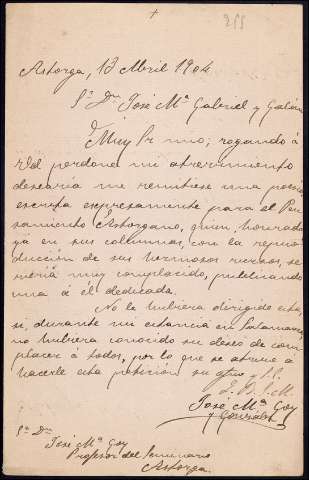 255
Astorga, 13 Abril 1904
Sr. Dn. José Mª Gabriel y Galán
Muy Sr mio; rogando á
Vd perdone mi atrevimiento
desearia me remitiese una poesia
escrita expresamente para el Pen-
samiento Astorgano, quien, honrado
ya en sus columnas, con la repro-
ducción de sus hermosos versos, se
veria muy complacido, publicando
una á él dedicada.
No le hubiera dirigido esta,
si, durante mi estancia en Salamanca,
no hubiera conocido su deseo de com-
placer á todos, por lo que se atreve á
hacerle esta petición su affmo y S.S.
Q. B. S. M.
José Mª Goy
y González
Sr. Dn.
José Mª Goy
Profesor del Seminario
Astorga.